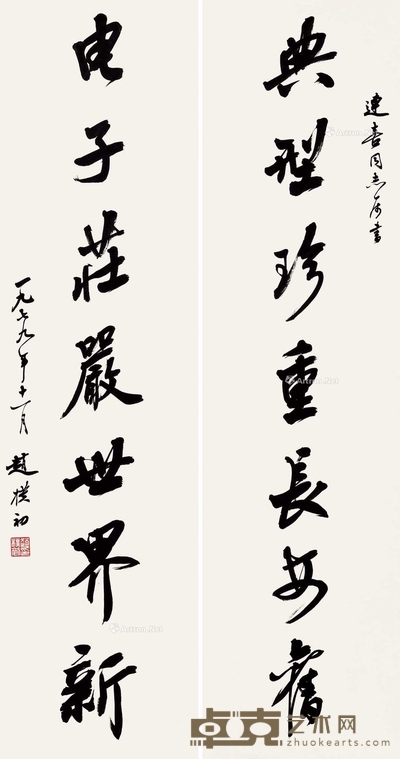 建喜同志属書
典型珍重長安舊
电子莊嚴世界新
一九七九年十一月 趙樸初
卓克艺术网
zhuokearts.com